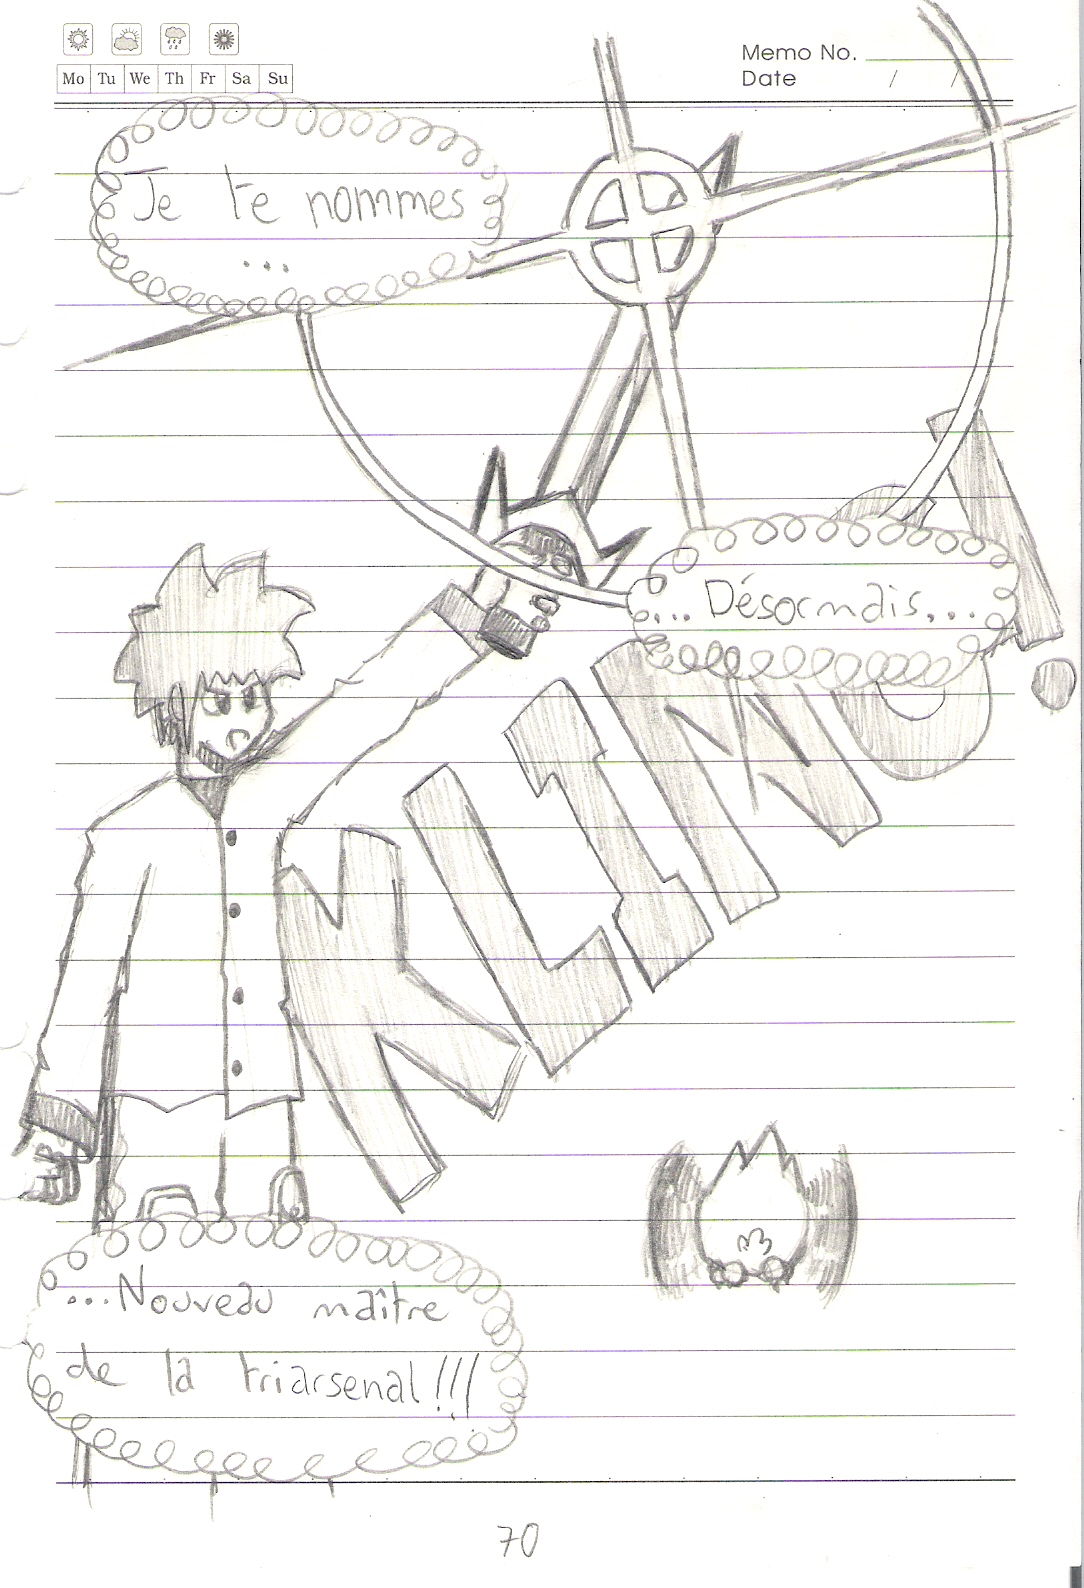 Memo No.
Mo Tu We Th Fr Sa Su
Date / /
Je te nommes
...
... Désormais...
KLING!
...Nouveau maître
de la triarsenal!!!
70